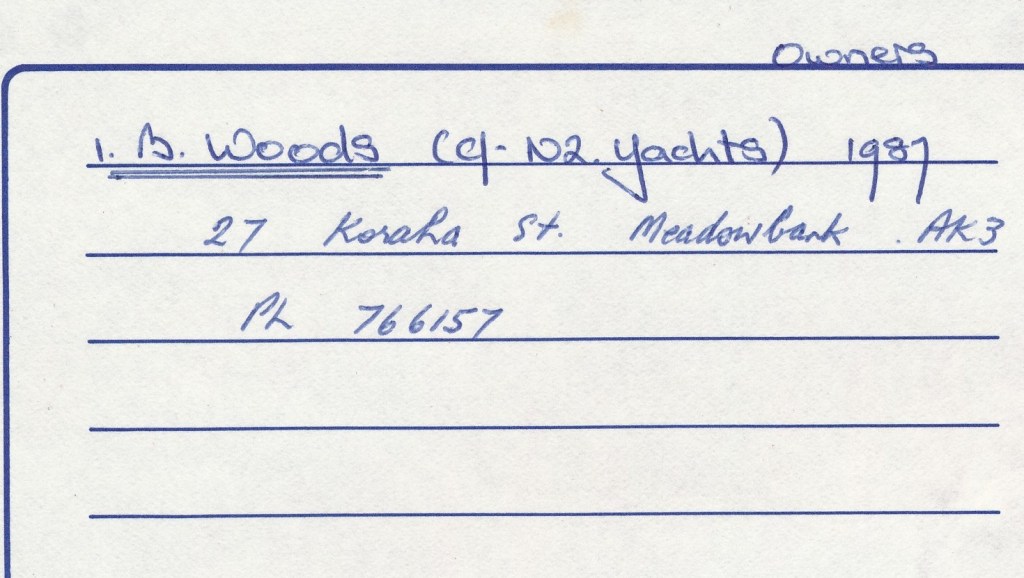 Owners
1. B. Woods (C/- NZ. Yachts) 1987
27 Koraha St. Meadowbank . AK3
Ph 766157